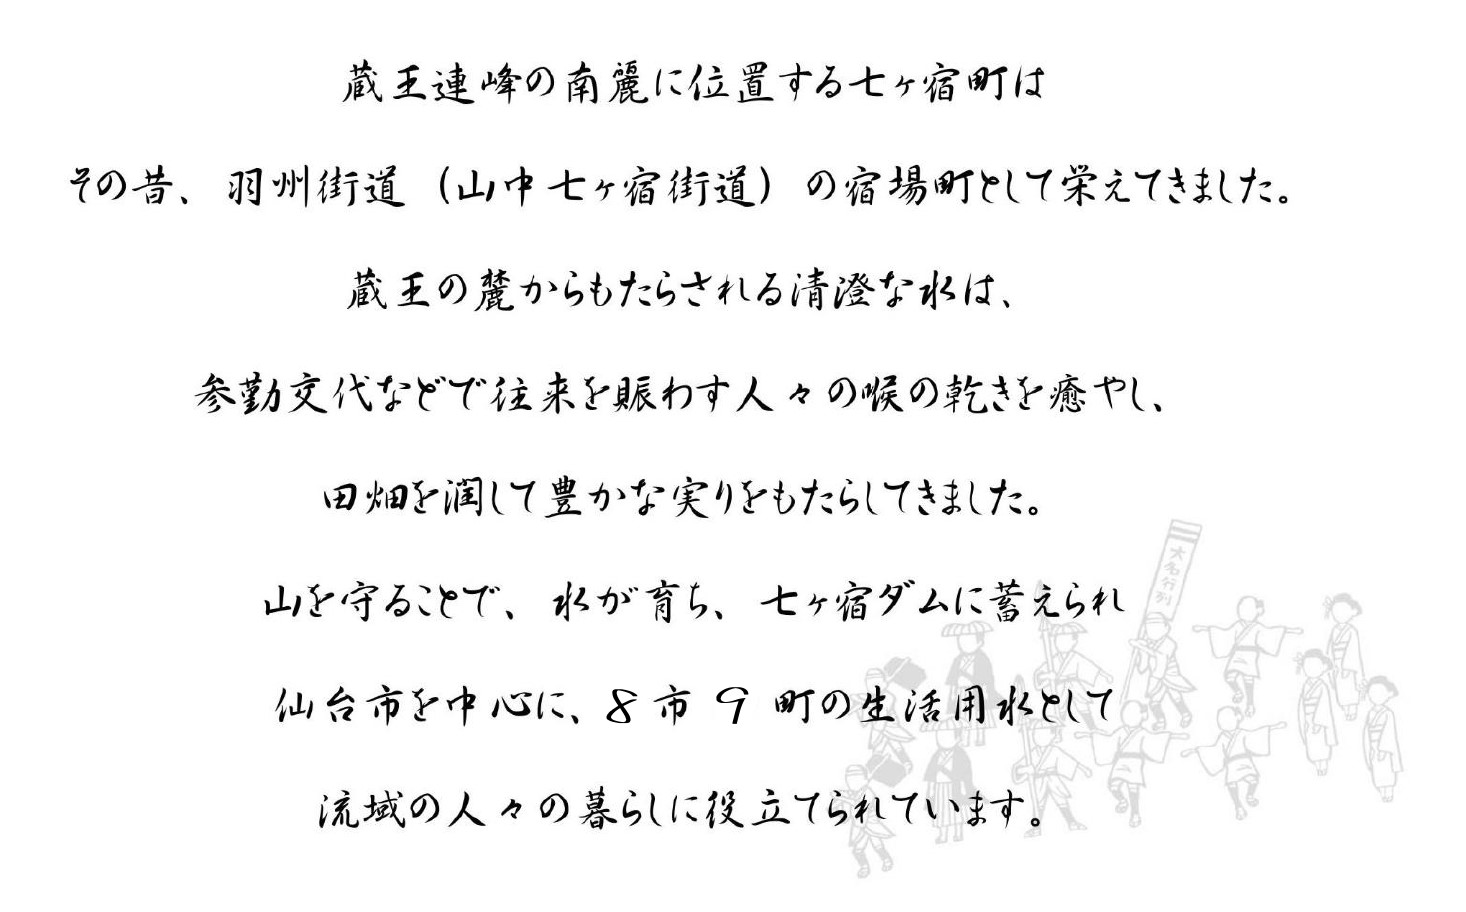 蔵王連峰の南麗に位置する七ヶ宿町は
その昔、羽州街道（山中七ヶ宿街道）の宿場町として栄えてきました。
蔵王の麓からもたらされる清澄な水は、
参勤交代などで往来を賑わす人々の喉の乾きを癒やし、
田畑を潤して豊かな実りをもたらしてきました。
大名行列
山を守ることで、水が育ち、七ヶ宿ダムに蓄えられ
仙台市を中心に、8市9町の生活用水として
流域の人々の暮らしに役立てられています。